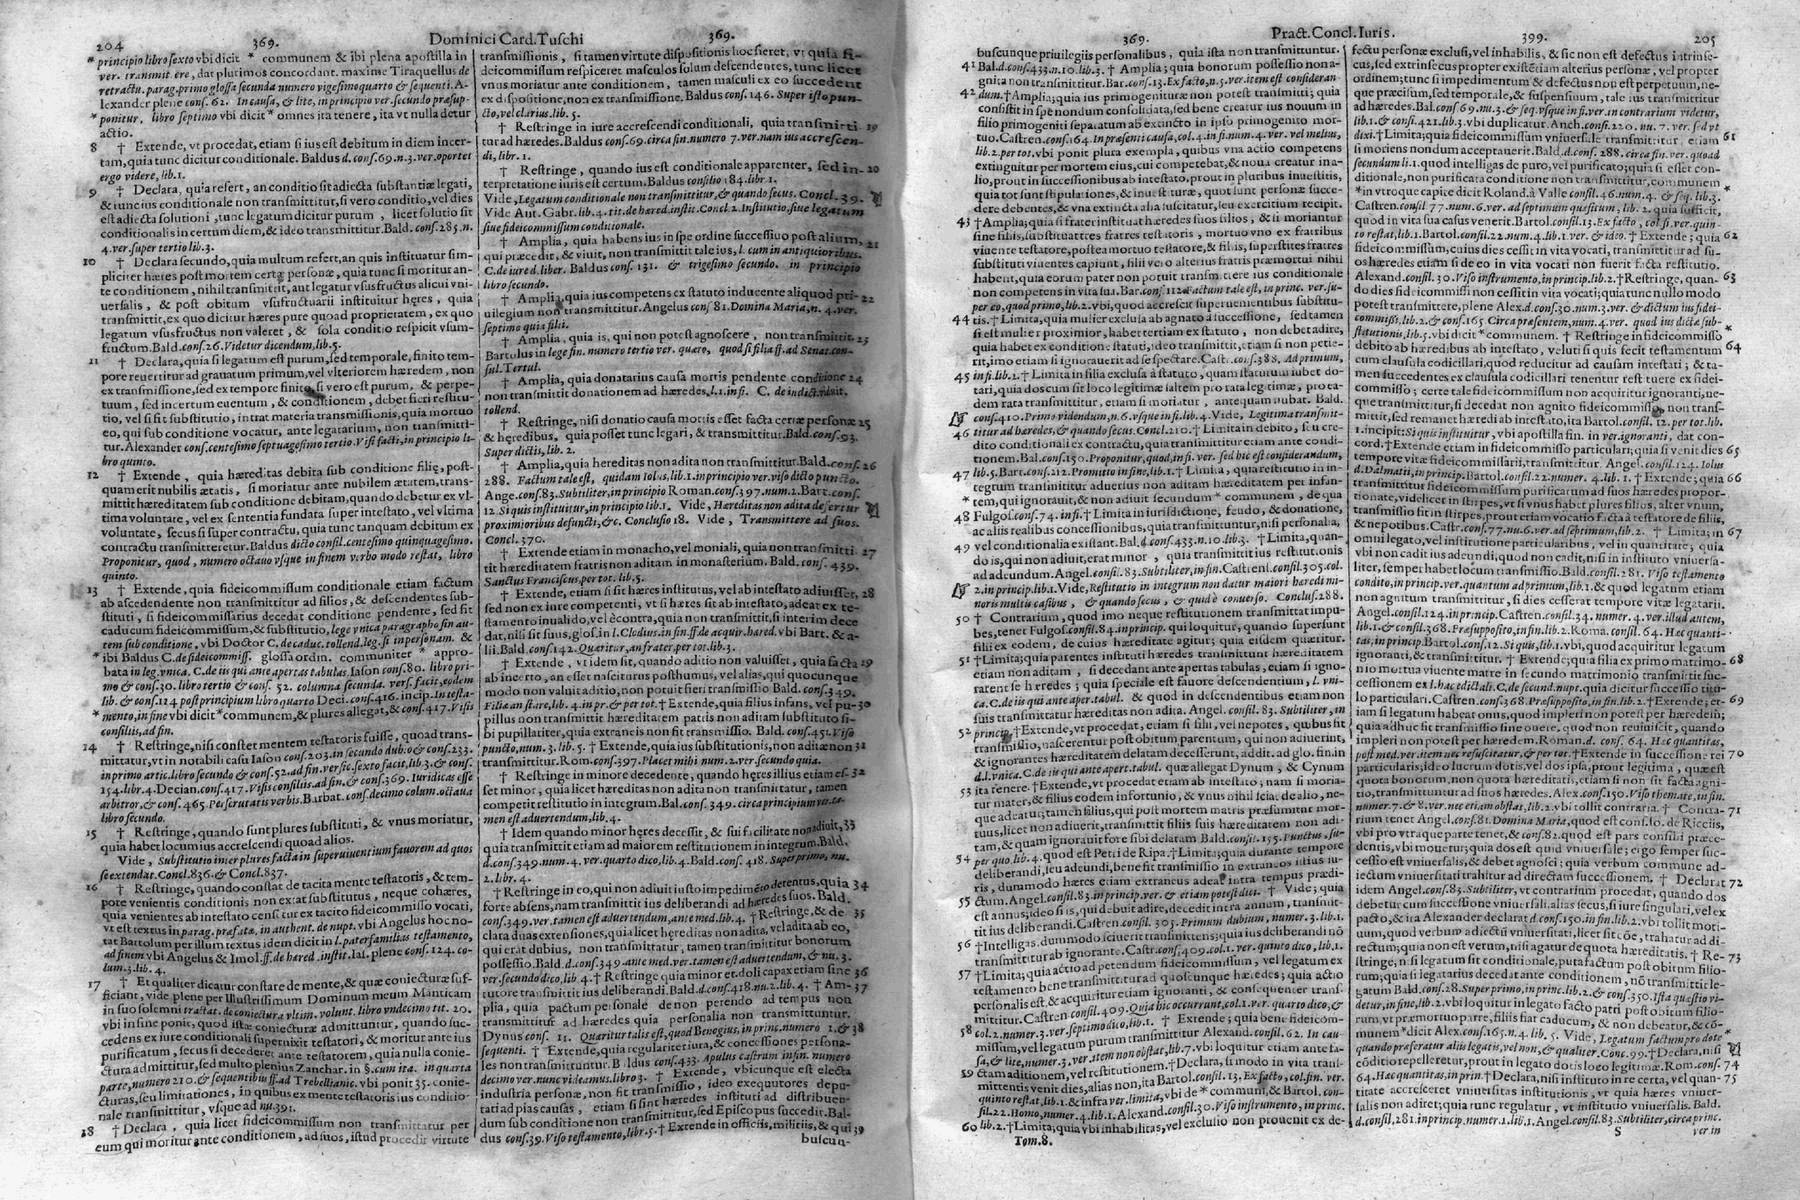 204
369.
Dominici Card. Tuschi
369.
principio libro sexto vbi dicit * communem & ibi plena apostilla in
ver. transmittere, dat plurimos concordant. maxime Tiraquellus de
retractu. parag. primo glossa secunda numero vigesimoquarto & sequenti. A-
lexander plene cons. 62. In causa, & lite, in principio ver. secundo præsup-
* ponitur, libro septimo vbi dicit * omnes ita tenere, ita vt nulla detur
actio.
8 † Extende, vt procedat, etiam si ius est debitum in diem incer-
tam, quia tunc dicitur conditionale. Baldus d. cons. 69. n. 3. ver. oportet
ergo videre, lib. 1.
9 † Declara, quia refert, an conditio sit adiecta substantiæ legati,
& tunc ius conditionale non transmittitur, si vero conditio, vel dies
est adiecta solutioni, tunc legatum dicitur purum, licet solutio sit
conditionalis in certum diem, & ideo transmittitur. Bald. cons. 285. n.
4. ver. super tertio lib. 3.
10 † Declara secundo, quia multum refert, an quis instituatur sim-
pliciter hæres post mortem certę personæ, quia tunc si moritur an-
te conditionem, nihil transmittit, aut legatur vsusfructus alicui vni-
uersalis, & post obitum vsufructuarii instituitur hęres, quia
transmittit, ex quo dicitur hæres pure quoad proprietatem, ex quo
legatum vsusfructus non valeret, & sola conditio respicit vsum-
fructum. Bald. cons. 26. Videtur dicendum, lib. 5.
11 † Declara, quia si legatum est purum, sed temporale, finito tem-
pore reuertitur ad grauatum primum, vel vlteriorem hæredem, non
ex transmissione, sed ex tempore finito, si vero est purum, & perpe-
tuum, sed incertum euentum, & conditionem, debet fieri restitu-
tio, vel si fit substitutio, intrat materia transmissionis, quia mortuo
eo, qui sub conditione vocatur, ante legatarium, non transmitti-
tur. Alexander cons. centesimo septuagesimo tertio. Visi facti, in principio li-
bro quinto.
12 † Extende, quia hæreditas debita sub conditione filię, post-
quam erit nubilis ætatis, si moriatur ante nubilem ætatem, trans-
mittit hæreditatem sub conditione debitam, quando debetur ex vl-
tima voluntate, vel ex sententia fundata super intestato, vel vltima
voluntate, secus si super contractu, quia tunc tanquam debitum ex
contractu transmitteretur. Baldus dicto consil. centesimo quinquagesimo.
Proponitur, quod, numero octauo vsque in finem verbo modo restat, libro
quinto.
13 † Extende, quia fideicommissum conditionale etiam factum
ab ascendente non transmittitur ad filios, & descendentes sub-
stituti, si fideicommissarius decedat conditione pendente, sed fit
caducum fideicommissum, & substitutio, lege vnica paragrapho sin au-
tem sub conditione, vbi Doctor C. de caduc. tollend. leg. si in personam. &
* ibi Baldus C. de fideicommiss. glossa ordin. communiter * appro-
bata in leg. vnica. C. de iis qui ante apertas tabulas. Iason cons. 80. libro pri-
mo & cons. 30. libro tertio & cons. 52. columna secunda. vers. facit, eodem
lib. & cons. 124 post principium libro quarto Deci. cons. 416. incip. In testa-
* mento, in fine vbi dicit * communem, & plures allegat, & cons. 417. Visis
consiliis, ad fin.
14 † Restringe, nisi constet mentem testatoris fuisse, quod trans-
mittatur, vt in notabili casu Iason cons. 203. in secundo dub. & cons. 233.
in primo artic. libro secundo & cons. 52. ad fin. ver. sic. sexto facit, lib. 3. & cons.
154. lib. 4. Decian. cons. 417. Visis consiliis, ad fin. & cons. 369. Iuridicas esse
arbitror, & cons. 465. Perscrutatis verbis. Barbat. cons. decimo colum. octaua
libro secundo.
15 † Restringe, quando sunt plures substituti, & vnus moriatur,
quia habet locum ius accrescendi quoad alios.
Vide, Substitutio inter plures facta in superuiuentium fauorem ad quos
se extendat. Concl. 836. & Concl. 837.
16 † Restringe, quando constat de tacita mente testatoris, & tem-
pore venientis conditionis non extat substitutus, neque cohæres,
quia venientes ab intestato censentur ex tacito fideicommisso vocati,
vt est textus in parag. præfata, in authent. de nupt. vbi Angelus hoc no-
tat Bartolum per illum textus idem dicit in l. paterfamilias testamento,
ad finem vbi Angelus & Imol. ff. de hæred. instit. Ias. plane cons. 124. co-
lum. 3. lib. 4.
17 † Et qualiter dicatur constare de mente, & quæ coniecturæ suf-
ficiant, vide plene per Illustrissimum Dominum meum Manticam
in suo solemni tractat. de coniecturæ vltim. volunt. libro vndecimo tit. 20.
vbi in fine ponit, quod istæ coniecturæ admittuntur, quando suc-
cedens ex iure conditionali superuixit testatori, & moritur ante ius
purificatum, secus si decederet ante testatorem, quia nulla conie-
ctura admittitur, sed multo plenius Zanchar. in §. cum ita. in quarta
parte, numero 210. & sequentibus ff. ad Trebellianic. vbi ponit 35. conie-
cturas, seu limitationes, in quibus ex mente testatoris ius conditio-
nale transmittitur, vsque ad nu. 391.
18 † Declara, quia licet fideicommissum non transmittatur per
eum qui moritur ante conditionem, ad suos, istud procedit virtute
transmissionis, si tamen virtute dispositionis hoc fieret, vt quia fi-
deicommissum respiceret masculos solum descendentes, tunc licet
vnus moriatur ante conditionem, tamen masculi ex eo succedent
ex dispositione, non ex transmissione. Baldus cons. 146. Super isto pun-
cto, vel clarius lib. 5.
† Restringe in iure accrescendi conditionali, quia transmitti- 19
tur ad hæredes. Baldus cons. 69. circa fin. numero 7. ver. nam ius accrescen-
di, libr. 1.
† Restringe, quando ius est conditionale apparenter, sed in- 20
terpretatione iuris est certum. Baldus consilio 184. libr. 1.
Vide, Legatum conditionale non transmittitur, & quando secus. Concl. 39.
Vide Ant. Gabr. lib. 4. tit. de hæred. instit. Concl. 2. Institutio, siue legatum
siue fideicommissum conditionale.
† Amplia, quia habens ius in spe ordine successiuo post alium, 21
qui præcedit, & viuit, non transmittit tale ius, l. cum in antiquioribus.
C. de iure d. liber. Baldus cons. 131. & trigesimo secundo. in principio
libro secundo.
† Amplia, quia ius competens ex statuto inducente aliquod pri- 22
uilegium non transmittitur. Angelus cons 81. Domina Maria, n. 4. ver.
septimo quia filii.
† Amplia, quia is, qui non potest agnoscere, non transmittit. 23
Bartolus in lege fin. numero tertio ver. quæro, quod si filia ff. ad Senat. con-
sul. Tertul.
† Amplia, quia donatarius causa mortis pendente conditione 24
non transmittit donationem ad hæredes, l. 1. in fi. C. de indict. viduit.
tollend.
† Restringe, nisi donatio causa mortis esset facta certæ personæ 25
& heredibus, quia posset tunc legari, & transmittitur. Bald. cons. 93.
Super dictis, lib. 2.
† Amplia, quia hereditas non adita non transmittitur. Bald. cons. 26
288. Factum tale est, quidam Iolus, lib. 1. in principio ver. viso dicto puncto.
Ange. cons. 83. Subtiliter, in principio Roman. cons. 397. num. 2. Bart. cons.
12. Si quis instituitur, in principio lib. 1. Vide, Hæreditas non adita defertur
proximioribus defuncti, &c. Conclusio 18. Vide, Transmittere ad suos.
Concl. 370.
† Extende etiam in monacho, vel moniali, quia non transmitti- 27
tit hæreditatem fratris non aditam in monasterium. Bald. cons. 439.
Sanctus Franciscus, per tot. lib. 5.
† Extende, etiam si sit hæres institutus, vel ab intestato adiuisset, 28
sed non ex iure competenti, vt si hæres sit ab intestato, adeat ex te-
stamento inualido, vel è contra, quia non transmittit, si interim dece
dat, nisi sit suus, glos. in l. Clodius. in fin. ff. de acquir. hæred. vbi Bart. & a-
lii. Bald. cons. 142. Quæritur, an frater, per tot. lib. 3.
† Extende, vt idem sit, quando aditio non valuisset, quia facta 29
ab incerto, an esset nasciturus posthumus, vel alias, qui quocunque
modo non valuit aditio, non potuit fieri transmissio Bald. cons. 349.
Filia an stare, lib. 4. in pr. & per tot. † Extende, quia filius infans, vel pu- 30
pillus non transmittit hæreditatem patris non aditam substituto si-
bi pupillariter, quia extraneis non fit transmissio. Bald. cons. 451. Viso
puncto, num. 3. lib. 5. † Extende, quia ius substitutionis, non aditæ non 31
transmittitur. Rom. cons. 397. Placet mihi num. 2. ver. secundo quia.
† Restringe in minore decedente, quando hęres illius etiam es- 32
set minor, quia licet hæreditas non adita non transmittatur, tamen
competit restitutio in integrum. Bal. cons. 349. circa principium ver. ta-
men est aduertendum, lib. 4.
† Idem quando minor hęres decessit, & sui facilitate non adiuit, 33
quia transmittit etiam ad maiorem restitutionem in integrum. Bald.
d. cons. 349. num. 4. ver. quarto dico, lib. 4. Bald. cons. 418. Super primo, nu.
2. libr. 4.
† Restringe in eo, qui non adiuit iusto impedimẽto detentus, quia 34
forte absens, nam transmittit ius deliberandi ad hæredes suos. Bald.
cons. 349. ver. tamen est aduertendum, ante med. lib. 4. † Restringe, & de 35
clara duas extensiones, quia licet hęreditas non adita, vel adita ab eo,
qui erat dubius, non transmittatur, tamen transmittitur bonorum
possessio. Bald. d. cons. 349. ante med. ver. tamen est aduertendum, & nu. 3.
ver. secundo dico, lib. 4. † Restringe quia minor et. doli capax etiam sine 36
tutore transmittit ius deliberandi. Bald. d. cons. 418. nu. 2. lib. 4. † Am- 37
plia, quia pactum personale de non petendo ad tempus non
transmittitur ad hæredes quia personalia non transmittuntur.
Dynus cons. 11. Quæritur talis est, quod Benegius, in princ. numero 1. & 38
sequenti. † Extende, quia regulariter iura, & concessiones persona-
les non transmittuntur. Baldus cons. 433. Apulus castrum in fin. numero
decimo ver. nunc videamus. libro 3. † Extende, vbicunque est electa
industria personæ, non fit transmissio, ideo exequutores depu-
tati ad pias causas, etiam si sint hæredes instituti ad distribuen-
dum sub conditione non transmittitur, sed Episcopus succedit. Bal-
dus cons. 39. Viso testamento, libr. 5. † Extende in officiis, militiis, & qui 39
buscun-
369.
Pract. Concl. Iuris.
399.
205
buscunque priuilegiis personalibus, quia ista non transmittuntur.
41 Bal. d. cons. 433. n. 10. lib. 3. † Amplia; quia bonorum possessio non a-
gnita non transmittitur. Bar. cons. 13. Ex facto, n. 5. ver. item est consideran-
42 dum. † Amplia; quia ius primogenituræ non potest transmitti; quia
consistit in spe nondum consolidata, sed bene creatur ius nouum in
filio primogeniti separatum ab extincto in ipso primogenito mor-
tuo. Castren. cons. 164. In præsenti causa, col. 4. in fi. num. 4. ver. vel melius,
lib. 2. per tot. vbi ponit plura exempla, quibus vna actio competens
extinguitur per mortem eius, cui competebat, & noua creatur in a-
lio, prout in successionibus ab intestato, prout in pluribus inuestitis,
quia tot sunt stipulationes, & inuestituræ, quot sunt personæ succe-
dere debentes, & vna extincta alia suscitatur, leu exercitium recipit.
43 † Amplia; quia si frater instituat hæredes suos filios, & si moriantur
sine filiis, substituat tres fratres testatoris, mortuo vno ex fratribus
viuente testatore, postea mortuo testatore, & filiis, superstites fratres
substituti viuentes capiunt, filii vero alterius fratris præmortui nihil
habent, quia eorum pater non potuit transmittere ius conditionale
non competens in vita sua. Bar. cons. 112. Factum tale est, in princ. ver. su-
per eo, quod primo, lib. 2. vbi, quod accrescit superuenientibus substitu-
44 tis. † Limita, quia mulier exclusa ab agnato à successione, sed tamen
si est mulier proximior, habet tertiam ex statuto, non debet adire,
quia habet ex conditione statuti, ideo transmittit, etiam si non petie-
rit, imo etiam si ignorauerit ad se spectare. Castr. cons. 388. Ad primum,
45 in fi. lib. 2. † Limita in filia exclusa à statuto, quam statutum iubet do-
tari, quia dos cum sit loco legitimæ saltem pro rata legitimæ, pro ea-
dem rata transmittitur, etiam si moriatur, antequam nubat. Bald.
cons. 410. Primo videndum, n. 6. vsque in fi. lib. 4. Vide, Legitima transmit-
46 titur ad hæredes, & quando secus. Concl. 210. † Limita in debito, seu cre-
dito conditionali ex contractu, quia transmittitur etiam ante condi-
tionem. Bal. cons. 150. Proponitur, quod, in fi. ver. sed hic est considerandum,
47 lib. 5. Bart. cons. 212. Promitto in fine, lib. 1. † Limita, quia restitutio in in-
tegrum transmittitur aduersus non aditam hæreditatem per infan-
* tem, qui ignorauit, & non adiuit secundum * communem, de qua
48 Fulgos. cons. 74. in fi. † Limita in iurisdictione, feudo, & donatione,
ac aliis realibus concessionibus, quia transmittuntur, nisi personalia,
vel conditionalia existant. Bal. d cons. 433. n. 10. lib. 3. † Limita, quan-
49 do is, qui non adiuit, erat minor, quia transmittit ius restitutionis
ad adeundum. Angel. consil. 83. Subtiliter, in fin. Castrens. cons. 305. col.
2. in princip. lib. 1. Vide, Restitutio in integrum non datur maiori heredi mi-
noris multis casibus, & quando secus, & quid è conuerso. Conclus. 288.
50 † Contrarium, quod imo neque restitutionem transmittat impu-
bes, tenet Fulgos. cons. 84. in princip. qui loquitur, quando supersunt
filii ex eodem, de cuius hæreditate agitur; quia eisdem quæritur.
51 † Limita; quia parentes instituti hæredes transmittunt hæreditatem
etiam non aditam, si decedant ante apertas tabulas, etiam si igno-
rarent se hæredes; quia speciale est fauore descendentium, l. vni-
ca. C. de iis qui ante aper. tabul. & quod in descendentibus etiam non
suis transmittatur hæreditas non adita. Angel. cons. 83. Subtiliter, in
52 princip. † Extende, vt procedat, etiam si filii, vel nepotes, quibus fit
transmissio, nascerentur post obitum parentum, qui non adiuerint,
& ignorantes hæreditatem delatam decesserunt, addit. ad glo. fin. in
d. l. vnica. C. de iis qui ante apert. tabul. quæ allegat Dynum, & Cynum
53 ita tenere. † Extende, vt procedat etiam ab intestato; nam si moria-
tur mater, & filius eodem infortunio, & vnus nihil sciat de alio, ne-
que adeatur; tamen filius, qui post mortem matris præsumitur mor-
tuus, licet non adiuerit, transmittit filiis suis hæreditatem non adi-
tam, & quam ignorauit fore sibi delatam Bald. consil. 155. Punctus, su-
54 per quo, lib. 4. quod est Petri de Ripa. † Limita; quia durante tempore
deliberandi, seu adeundi, bene fit transmissio in extraneos illius iu-
ris, dummodo hæres etiam extraneus adeat intra tempus prædi-
55 ctum. Angel. cons. 83. in princip. ver. & etiam potest dici. † Vide; quia
est annus; ideo si is, qui debuit adire, decedit intra annum, transmit-
tit ius deliberandi. Castren. cons. 305. Primum dubium, numer. 3. lib. 1.
56 † Intelligas. dummodo sciuerit transmittens; quia ius deliberandi nõ
transmittitur ab ignorante. Castr. cons. 409. col. 1. ver. quinto dico, lib. 1.
57 † Limita; quia actio ad petendum fideicommissum, vel legatum ex
testamento bene transmittitur ad quoscunque hæredes; quia actio
personalis est, & acquiritur etiam ignoranti, & consequenter trans-
mittitur. Castren. cons. 409. Quia hic occurrunt, col. 1. ver. quarto dico, &
58 col. 2. numer. 3. ver. septimo dico, lib. 1. † Extende; quia bene fideicom-
missum, vel legatum purum transmittitur Alexand. cons. 62. In cau-
sa, & lite, numer. 3. ver. item non obstat, lib. 7. vbi loquitur etiam ante fa-
59 ctam restitutionem. † Declara, si modo in vita trans-
mittentis venit dies, alias non, ita Bartol. consil. 13. Ex facto, col. fin. ver.
quinto restat, lib. 1. & infra ver. limita, vbi de * communi, & Bartol. con-
sil. 22. Homo, numer. 4. lib. 1. Alexand. cons. 30. Viso instrumento, in princ.
60 lib. 2. † Limita; quia vbi inhabilitas, vel exclusio non prouenit ex de-
Tom. 8.
fectu personæ exclusi, vel inhabilis, & sic non est defectus intrinse-
cus, sed extrinsecus propter existẽtiam alterius personæ, vel propter
ordinem; tunc si impedimentum & defectus non est perpetuum, ne-
que præcisum, sed temporale, & suspensiuum, tale ius transmittitur
ad hæredes. Bal. cons. 69. nu. 3. & seq. vsque in fi. ver. in contrarium videtur,
lib. 1. & cons. 421. lib. 3. vbi duplicatur. Anch. consi. 220. nu. 7. ver. sed vt
dixi. † Limita; quia fideicommissum vniuersale transmittitur, etiam 61
si moriens nondum acceptauerit. Bald. d. cons. 288. circa fin. ver. quoad
secundum li. 1. quod intelligas de puro, vel purificato; quia si esset con-
ditionale, non purificata conditione non transmittitur, communem *
* in vtroque capite dicit Roland. à Valle consil. 46. num. 4. & seq. lib. 3.
Castren. consil 77 num. 6. ver. ad septimum quæsitum, lib. 2. quia sufficit,
quod in vita sua casus venerit. Bartol. consil. 13. Ex facto, col. fi. ver. quin-
to restat, lib. 1. Bartol. cons. 22. num. 4. lib. 1. ver. & ideo. † Extende; quia 62
fideicommissum, cuius dies cessit in vita vocati, transmittitur ad su-
os hæredes etiam si de eo in vita vocati non fuerit facta restitutio.
Alexand. consil. 30. Viso instrumento, in princip. lib. 2. † Restringe, quan- 63
do dies fideicommissi non cessit in vita vocati; quia tunc nullo modo
potest transmittere, plene Alex. d. cons. 30. num. 3. ver. & dictum ius fidei-
commissi, lib. 2. & cons. 165 Circa præsentem, num. 4. ver. quod ius dictæ sub-
stitutionis, lib. 5. vbi dicit * communem. † Restringe in fideicommisso *
debito ab hæredibus ab intestato, veluti si quis fecit testamentum 64
cum clausula codicillari, quod reducitur ad causam intestati; & ta-
men succedentes ex clausula codicillari tenentur restituere ex fidei-
commisso; certe tale fideicommissum non acquiritur ignoranti, ne-
que transmittitur, si decedat non agnito fideicommisso, non trans-
mittit, sed remanet heredi ab intestato, ita Bartol. consil. 12. per tot. lib.
1. incipit: Si quis instituitur, vbi apostilla fin. in ver. ignoranti, dat con-
cord. † Extende etiam in fideicommisso particulari; quia si venit dies 65
tempore vitæ fideicommissarii, transmittitur. Angel. consil. 124. Iolus
d. Dalmatii, in princip. Bartol. consil. 22. numer. 4. lib. 1. † Extende; quia 66
transmittitur fideicommissum purificatum ad suos hæredes propor-
tionate, videlicet in stirpes, vt si vnus habet plures filios, alter vnum,
transmissio fit in stirpes, prout etiam vocatio facta à testatore de filiis,
& nepotibus. Castr. cons. 77. nu. 6. ver. ad septimum, lib. 2. † Limita; in 67
omni legato, vel institutione particularibus, vel in quantitate; quia
vbi non cadit ius adeundi, quod non cadit, nisi in instituto vniuersa-
liter, semper habet locum transmissio. Bald. cons. 281. Viso testamento
condito, in princip. ver. quantum ad primum, lib. 1. & quod legatum etiam
non agnitum transmittitur, si dies cesserat tempore vitæ legatarii.
Angel. consil. 124. in princip. Castren. consil. 34. numer. 4. ver. illud autem,
lib. 1. & consil. 368. Præsupposito, in fin. lib. 2. Roma. consil. 64. Hæc quanti-
tas, in princip. Bartol. cons. 12. Si quis, lib. 1. vbi, quod acquiritur legatum
ignoranti, & transmittitur. † Extende; quia filia ex primo matrimo- 68
nio mortua viuente matre in secundo matrimonio transmittit suc-
cessionem ex l. hac edictali. C. de secund. nupt. quia dicitur successio titu-
lo particulari. Castren. cons. 368. Præsupposito, in fin. lib. 2. † Extende; et- 69
iam si legatum habeat onus, quod impleri non potest per hæredem;
quia adhuc fit transmissio sine onere. quod non reuiuiscit, quando
impleri non potest per hæredem. Roman. d. cons. 64. Hæc quantitas,
post med. ver. item nec resuscitatur, & per tot. † Extende in successione rei 70
particularis; ideo lucrum dotis, vel dos ipsa, prout legitima, quæ est
quota bonorum, non quota hæreditatis, etiam si non sit facta agni-
tio, transmittuntur ad suos hæredes. Alex. cons. 150. Viso themate, in fin.
numer. 7. & 8. ver. nec etiam obstat, lib. 2. vbi tollit contraria. † Contra- 71
rium tenet Angel. cons. 81. Domina Maria, quod est cons. Io. de Ricciis,
vbi pro vtraque parte tenet, & cons. 82. quod est pars consilii præce-
dentis, vbi mouetur; quia dos est quid vniuersale; ergo semper suc-
cessio est vniuersalis, & debet agnosci; quia verbum commune ad-
iectum vniuersitati trahitur ad directam successionem. † Declarat 72
idem Angel. cons. 83. Subtiliter, vt contrarium procedat, quando dos
debetur cum successione vniuersali, alias secus, si iure singulari, vel ex
pacto, & ita Alexander declarat d. cons. 150. in fin. lib. 2. vbi tollit moti-
uum, quod verbum adiectũ vniuersitati, licet sit cõe, trahatur ad di-
rectum; quia non est verum, nisi agatur de quota hæreditatis. † Re- 73
stringe, n. si legatum sit conditionale, puta factum post obitum filio-
rum; quia si legatarius decedat ante conditionem, nõ transmittit le-
gatum Bald. cons. 28. Super primo, in princ. lib. 2. & cons. 350. Ista quæstio vi-
detur, in fine, lib. 2. vbi loquitur in legato facto patri post obitum filio-
rum, vt præmortuo patre, filiis fiat caducum, & non debeatur, & cõ-
munem * dicit Alex. cons. 165. n. 4. lib. 5. Vide, Legatum factum pro dote *
quando præferatur aliis legatis, vel non, & qualiter. Conc. 99. † Declara, nisi
cõditio repelleretur, prout in legato dotis loco legitimæ. Rom. cons. 74
64. Hæc quantitas, in prin. † Declara, nisi instituto in re certa, vel quan- 75
titate accresceret vniuersitas institutionis, vt quia hæres vniuer-
salis non adiret; quia tunc regulatur, vt institutio vniuersalis. Bald.
d. consil. 281. in princip. numer. 1. lib. 1. Angel. cons. 83. Subtiliter, circa princ.
S
ver in